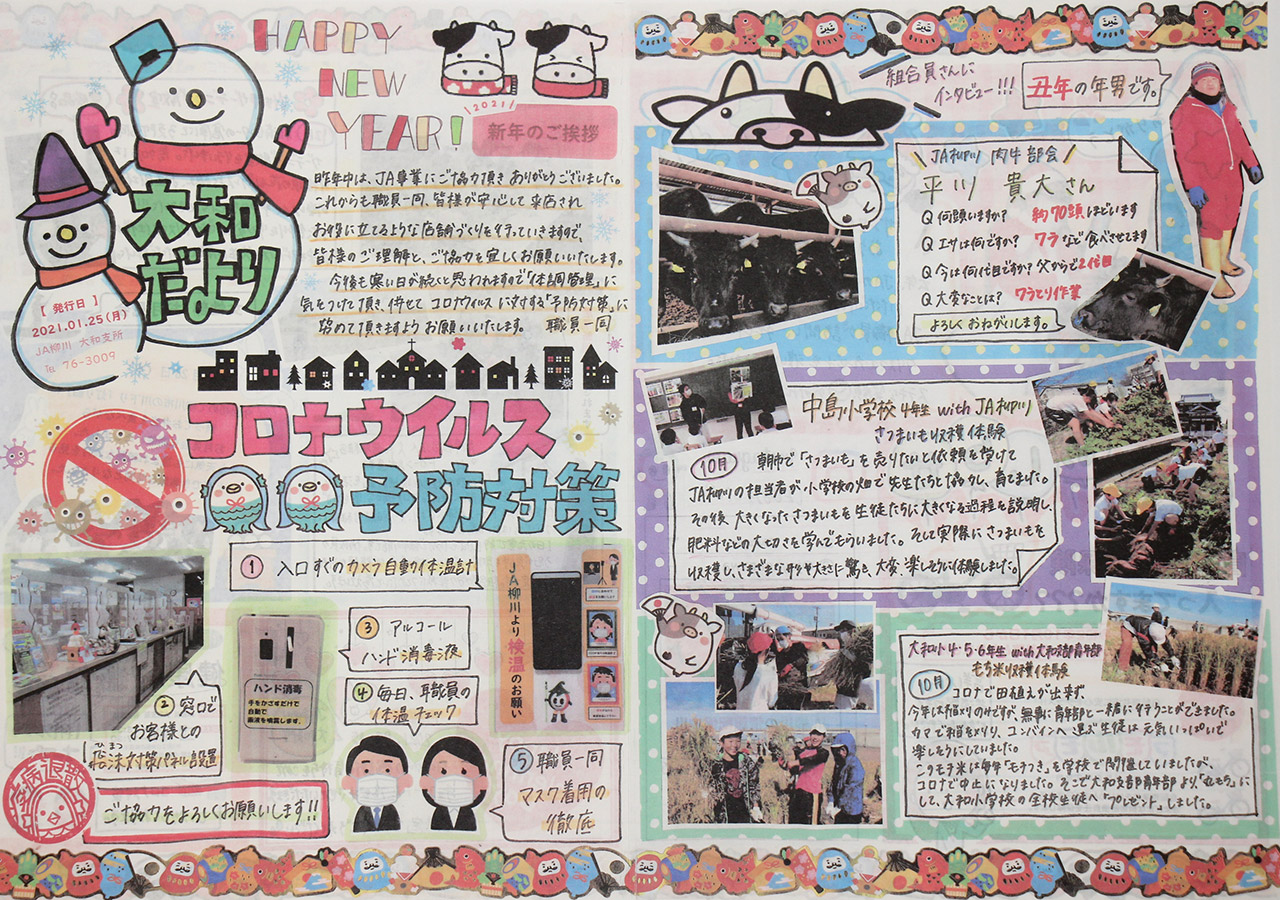 HAPPY
NEW
YEAR!
2021
新年のご挨拶
大和
だより
【 発行日 】
2021.01.25(月)
JA柳川 大和支所
℡ 76-3009
昨年中は、JA事業にご協力頂き ありがとうございました。
これからも職員一同、皆様が安心して来店され
お役に立てるような店舗づくりを行っていきますので、
皆様のご理解と、ご協力を宜しくお願いいたします。
今後も寒い日が続くと思われますので「体調管理」に
気をつけて頂き、併せて コロナウイルスに対する「予防対策」に
努めて頂きますよう お願いいたします。 職員一同
コロナウイルス
予防対策
① 入口すぐのカメラ自動体温計
② 窓口で
お客様との
飛沫対策パネル設置
ひまつ
③ アルコール
ハンド消毒液
④ 毎日、職員の
体温チェック
⑤ 職員一同
マスク着用の
徹底
ハンド消毒
手をかざすだけで
自動で
薬液を噴霧します。
JA柳川より
検温のお願い
ご協力をよろしくお願いします!!
組合員さんに
インタビュー!!!
丑年の年男です。
JA柳川 肉牛部会
平川 貴大さん
Q 何頭いますか? 約70頭ほどいます
Q エサは何ですか? ワラなど食べさせてます
Q 今は何代目ですか? 父からで2代目
Q 大変なことは? ワラとり作業
よろしくおねがいします。
中島小学校 4年生 with JA柳川
さつまいも収穫体験
10月 朝市で「さつまいも」を売りたいと依頼を受けて
JA柳川の担当者が小学校の畑で先生たちと協力し、育てました。
その後、大きくなったさつまいもを生徒たちに大きくなる過程を説明し、
肥料などの大切さを学んでもらいました。そして実際にさつまいもを
収穫し、さまざまな形や大きさに驚き、大変楽しそうに体験しました。
大和小4・5・6年生 with大和支部青年部
もち米収穫体験
10月 コロナで田植えが出来ず、
今年は稲刈りのみですが、無事に青年部と一緒に行うことができました。
カマで稲を刈り、コンバインへ運ぶ生徒は元気いっぱいで
楽しそうにしていました。
このモチ米は毎年「モチつき」を学校で開催していましたが、
コロナで中止になりました。そこで大和支部青年部より、「丸もち」に
して、大和小学校の全校生徒へ「プレゼント」しました。